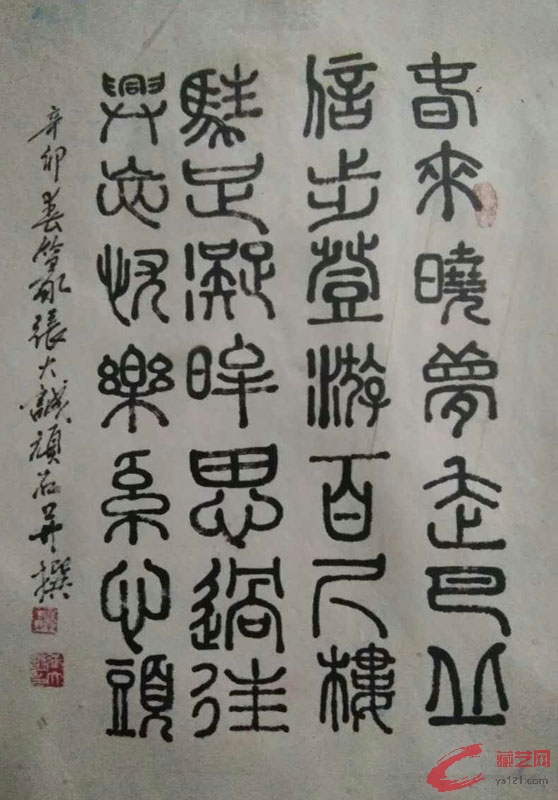 春來曉夢走巴丘
信步登游百尺樓
駐足凝眸思過往
興亡忧樂系心頭
辛卯春篆張大誠頑石并撰
藏艺网
ys121.com